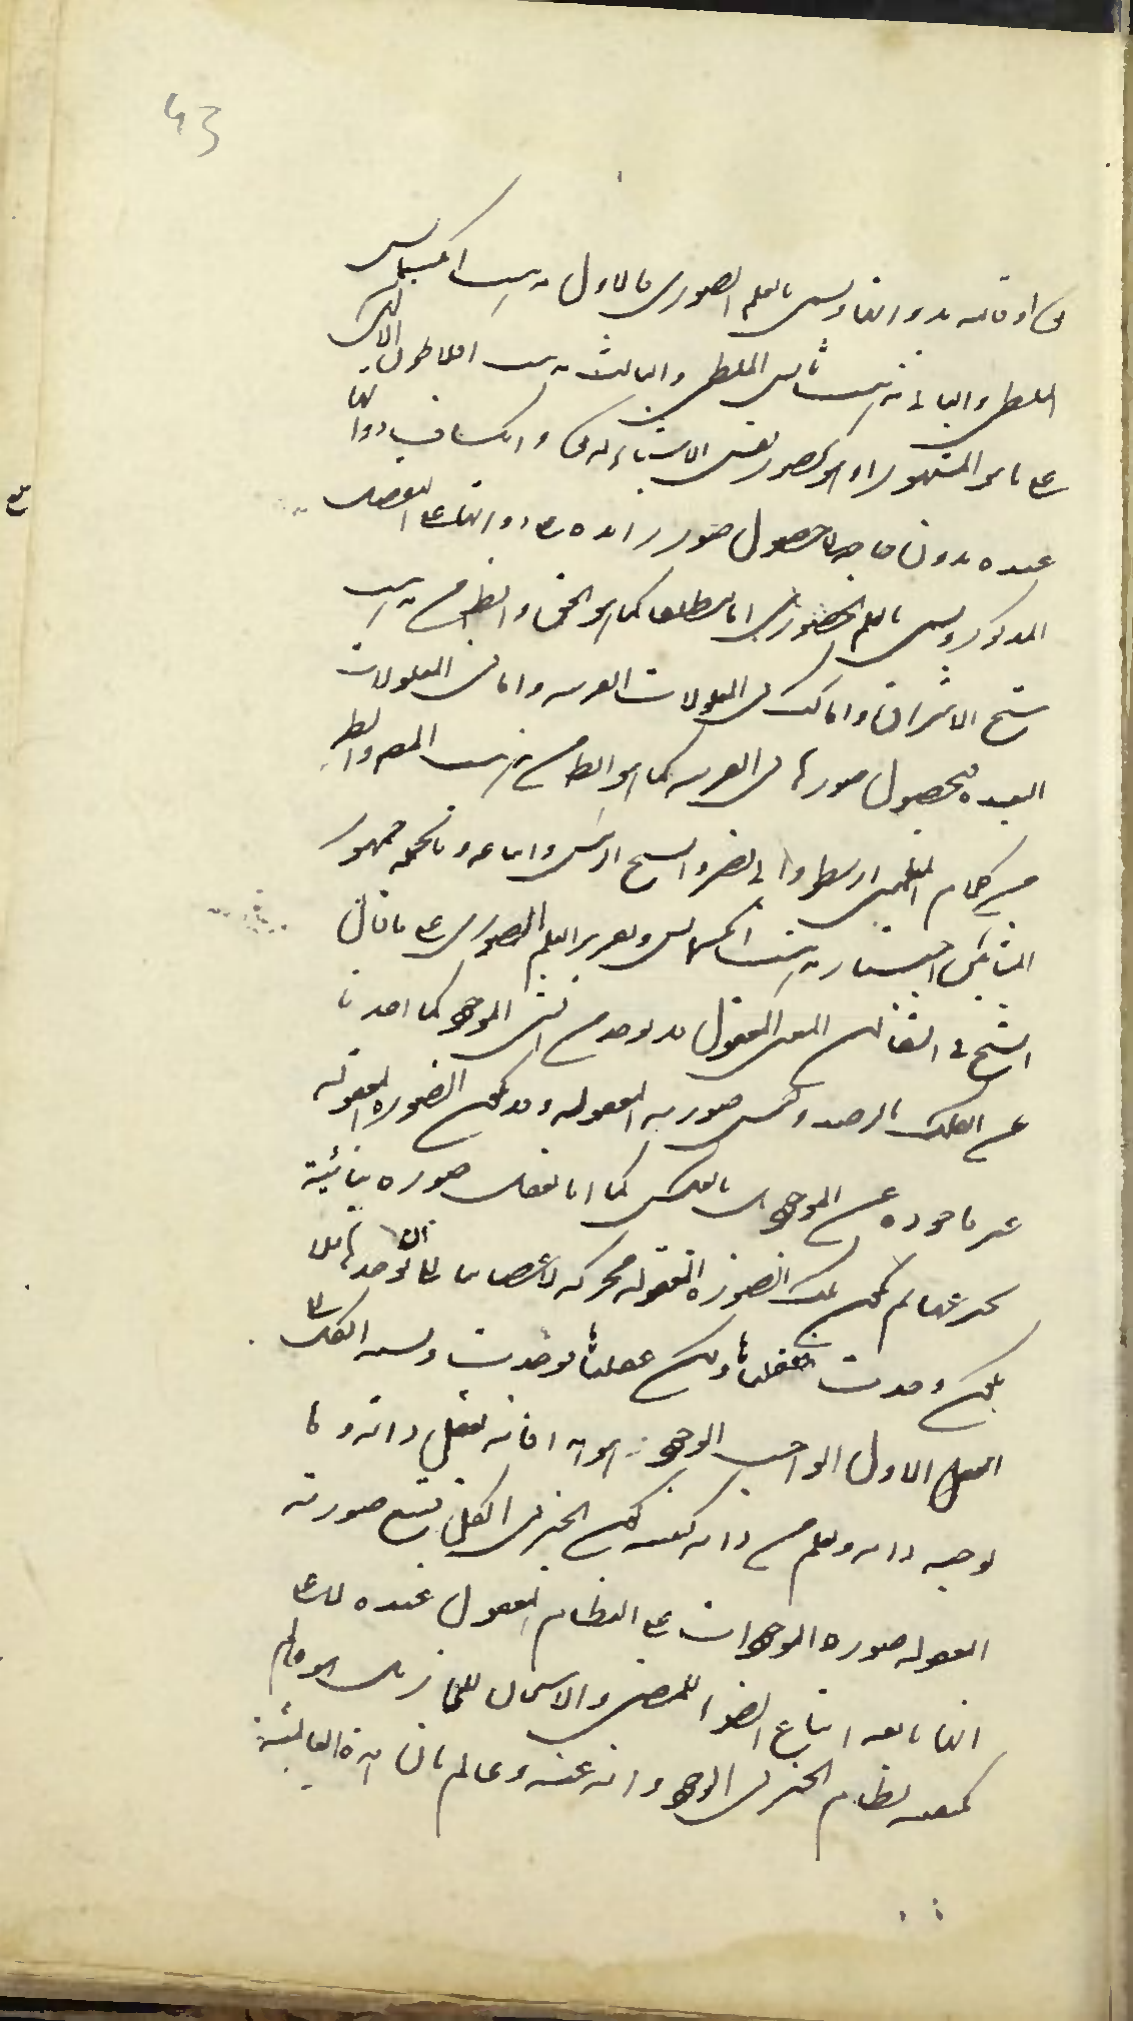 43
تعالى او قائمه بذوا تها ويسمى بالعلم الصورى فالاول مذهب انكسيمايس
الملطى والثانى مذهب ثاليس الملطى والثالث مذهب افلاطون الالهى
على ما هو المشهور او هو حضور نفس الاشياء له تعالى وانكشاف ذواتها
عنده بدون حاجة الى حصول صور زائدة على ذواتها على التفصيل
المذكور ويسمى بالعلم الحضورى اما مطلقا كما هو الحق والظاهر من مذهب
شيخ الاشراق واما كك فى المعلولات القريبه واما فى المعلولات
البعيده فبحصول صورها فى القريبه كما هو الظاهر من مذهب المصـ والظـ
من كلام المعلمين ارسطو وابى نصر والشيخ الرئيس واتباعه وبالجمله جمهور
المشائين اختيار مذهب انكسيمايس وتقرير العلم الصورى على ما قال
الشيخ فى الشفا لكن المعنى المعقول قد يوخد من الشى الموجود كما اخذنا
عن الفلك بالرصد والحس صورته المعقوله وقد تكون الصورة المعقوله
غير ماخوده عن الموجود بل بالعكس كما انا نعقل صورة بنائية
نخترعها ثم تكون تلك الصورة المعقوله محركه لاعضائنا الى ان نوجدها فلا
تكون وجدت فعقلناها ولكن عقلناها فوجدت ونسبه الكل الى
العقل الاول الواجب الوجود هو هذا فانه يعقل ذاته وما
يوجبه ذاته ويعلم من ذاته كيفيه كون الخير فى الكل فتتبع صورته
المعقوله صوره الموجودات على النظام المعقول عنده لا على
انها تابعه اتباع الضوء للمضى والاسخان للحار بل هو عالم
بكيفيه نظام الخير فى الوجود وانه عنه وعالم بان هذه العالمية